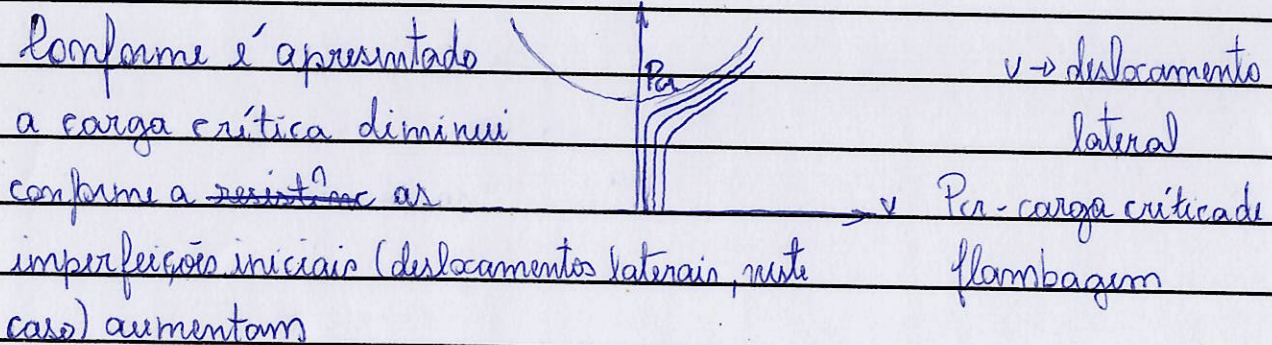 Conforme é apresentado
a carga crítica diminui
conforme a resistênc as
imperfeições iniciais (deslocamentos laterais, neste
caso) aumentam
Pcr
v
v → deslocamento
lateral
Pcr - carga crítica de
flambagem